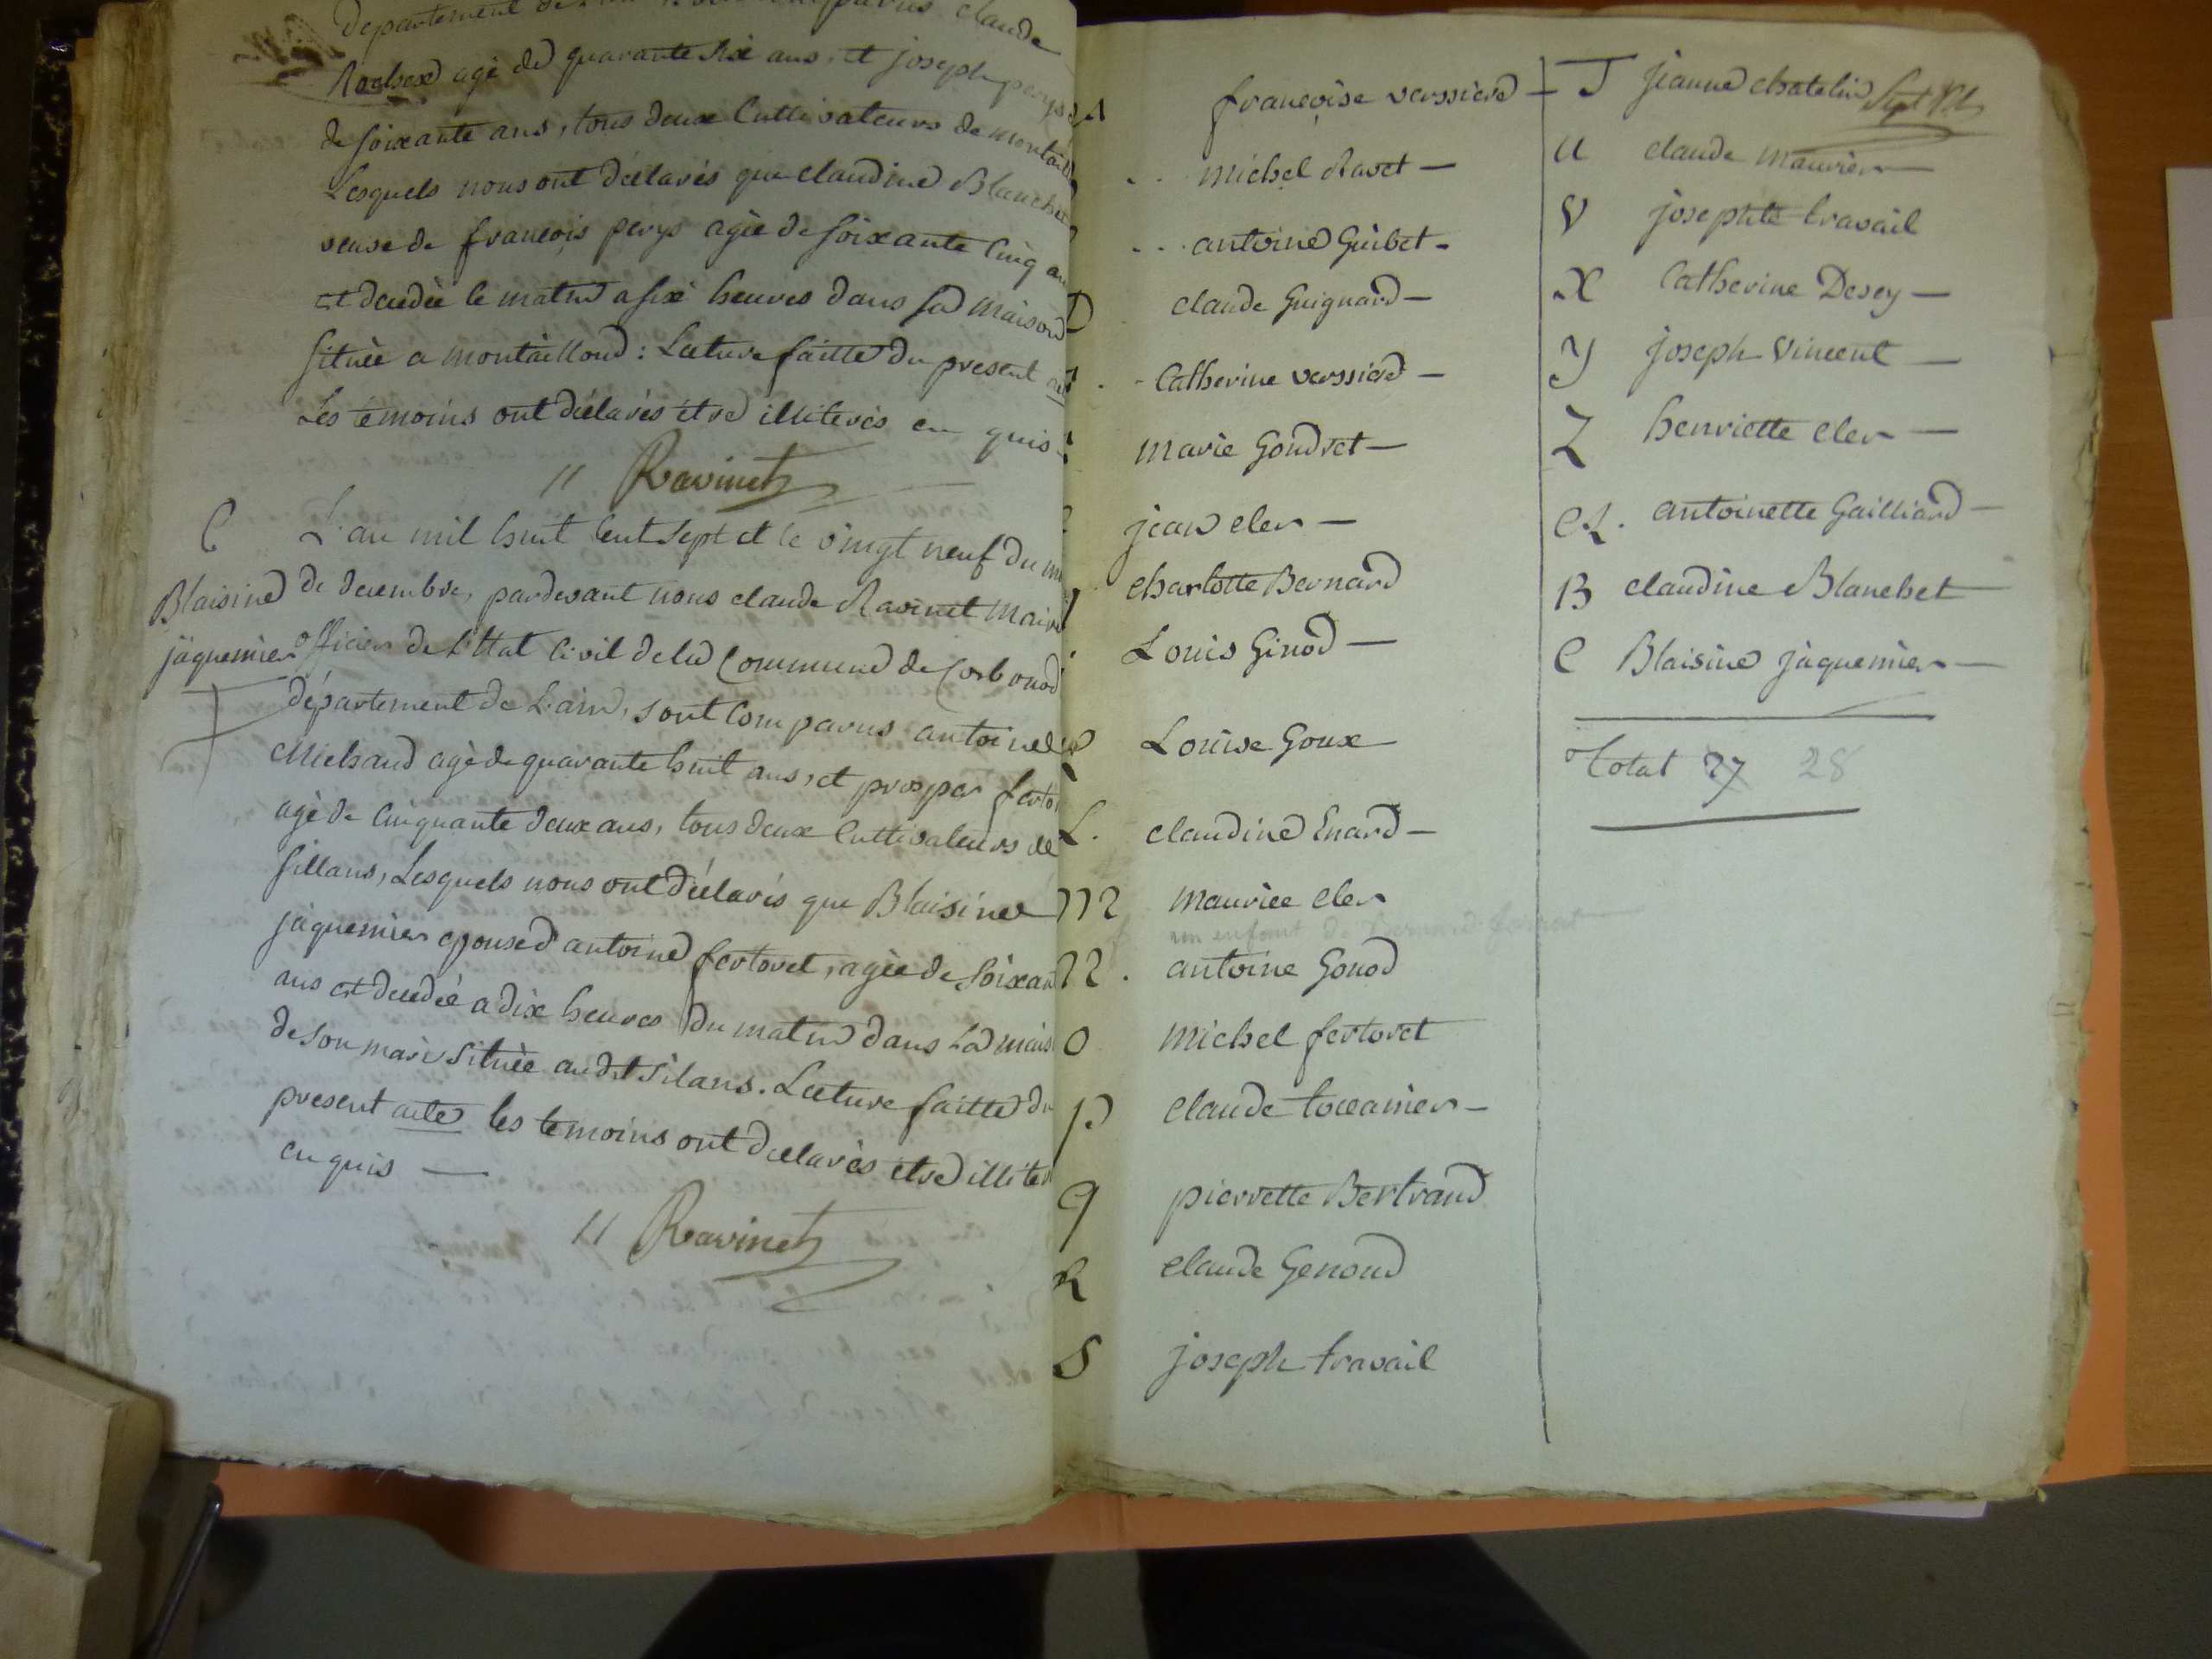 département de claude
agé de quarante six ans, et joseph perys
de soixante ans, tous deux Cultivateurs de montail
Lesquels nous ont déclarés que claudine Blanchet
veuve de françois perys agée de soixante Cinq an
est decedée le matin a six heures dans sa maison
située a montailloud : Lecture faitte du present acte
Les temoins ont déclarés être illiterés en quis -
// Ravinet
C L'an mil huit Cent sept et le vingt neuf du m
Blaisine de decembre, pardevant nous claude Ravinet Maire
jàquemier officier de l'État Civil de la Commune de Corbonod
département de L'ain, sont Comparus antoine
Michaud agé de quarante huit ans, et prosper ferto
agé de Cinquante deux ans, tous deux Cultivateurs de
sillans, Lesquels nous ont déclarés que Blaisine
jàquemier epouse d'antoine fertoret, agée de soixan
ans est decedée a dix heures du matin dans la mais
de son mari située au dit silans. Lecture faitte du
present acte les temoins ont declarés être illiter
en quis —
// Ravinet
A françoise verssiere —
michel Ravet —
antoine Guibet -
D claude Guignard —
Catherine verssiere —
marie Goudret —
jean cler —
charlotte Bernard
Louis Ginod —
Louise Goux
L. claudine Enard —
M maurice cler
un enfant de Bernard
N . antoine Gonod
O michel fertoret
P claude tocanier —
q pierrette Bertrand
R claude Genoud
S joseph travail
T jeanne chatelin
U claude maurier —
V josephte travail
X Catherine Desey —
Y joseph Vincent —
Z henriette cler —
A . antoinette Gailliard —
B claudine Blanchet
C Blaisine jàquemier —
Total 27 28